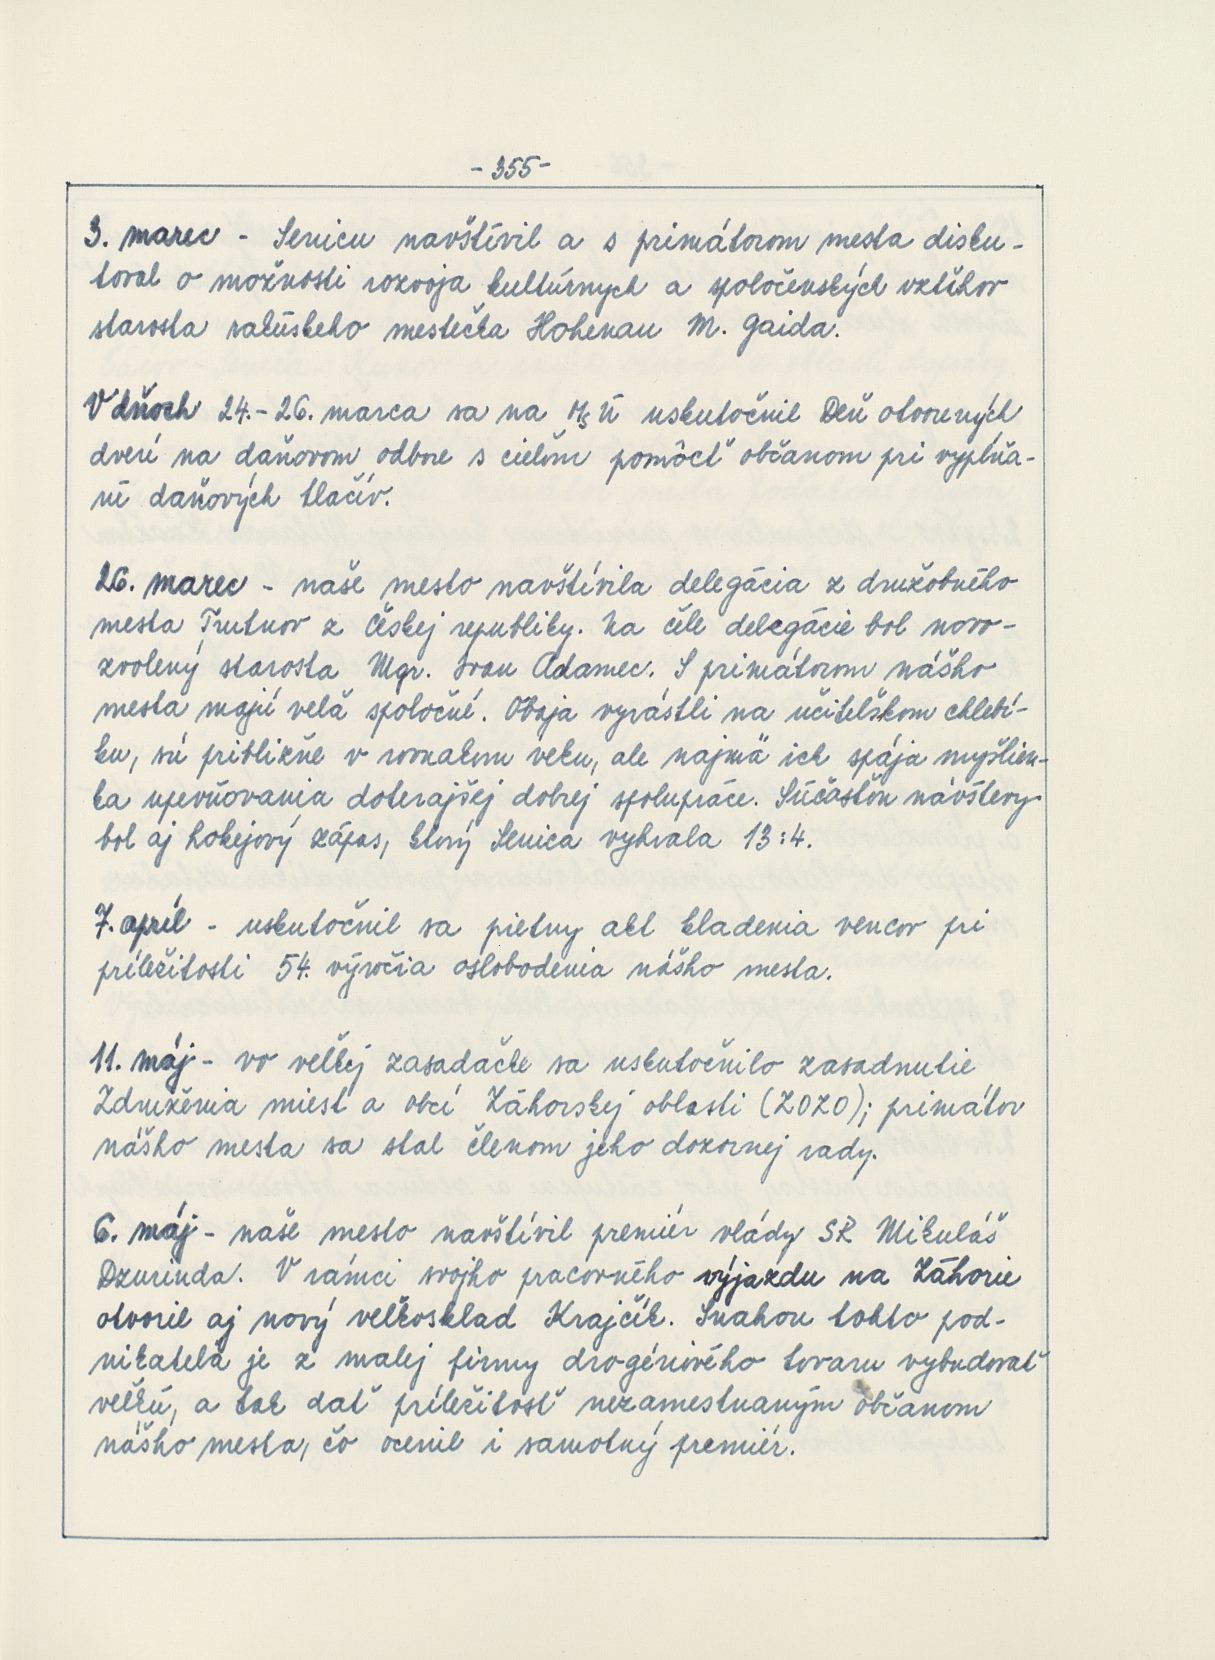 - 355 -
3. marec - Senicu navštívil a s primátorom mesta disku-
toval o možnosti rozvoja kultúrnych a spoločenských vzťahov
starosta rakúskeho mestečka Hohenau M. Gaida.
V dňoch 24.-26. marca sa na MsÚ uskutočnil Deň otvorených
dverí na daňovom odbore s cieľom pomôcť občanom pri vypĺňa-
ní daňových tlačív.
26. marec - naše mesto navštívila delegácia z družobného
mesta Trutnov z Českej republiky. Na čele delegácie bol novo-
zvolený starosta Mgr. Ivan Adamec. S primátorom nášho
mesta majú veľa spoločné. Obaja vyrástli na učiteľskom chlebí-
ku, sú približne v rovnakom veku, ale najmä ich spája myšlien-
ka upevňovania doterajšej dobrej spolupráce. Súčasťou návštevy
bol aj hokejový zápas, ktorý Senica vyhrala 13:4.
7. apríl - uskutočnil sa pietny akt kladenia vencov pri
príležitosti 54. výročia oslobodenia nášho mesta.
11. máj - vo veľkej zasadačke sa uskutočnilo zasadnutie
Združenia miest a obcí Záhorskej oblasti (ZOZO); primátor
nášho mesta sa stal členom jeho dozornej rady.
6. máj - naše mesto navštívil premiér vlády SR Mikuláš
Dzurinda. V rámci svojho pracovného výjazdu na Záhorie
otvoril aj nový veľkosklad Krajčík. Snahou tohto pod-
nikateľa je z malej firmy drogériového tovaru vybudovať
veľkú, a tak dať príležitosť nezamestnaným občanom
nášho mesta, čo ocenil i samotný premiér.